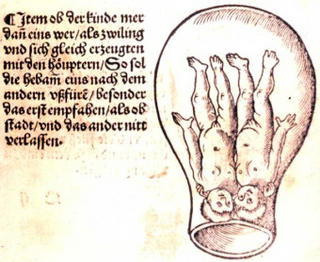 ¶Item ob der kinde mer
dañ eins wer/als zwiling
vnd sich gleich erzeugten
mit den höuptern/So sol
die hebam̃ eins nach dem
andern vßfürē/besonder
das erst empfahen/als ob
stadt/vnd das ander nitt
verlassen.